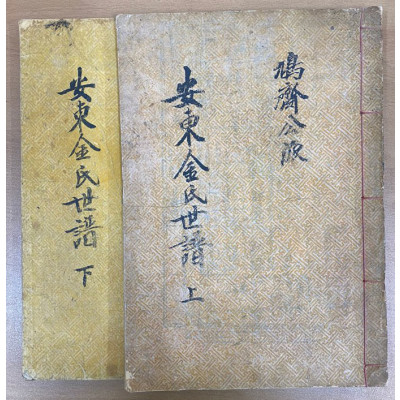 鳩齊公派
安東金氏世譜 上
安東金氏世譜 下